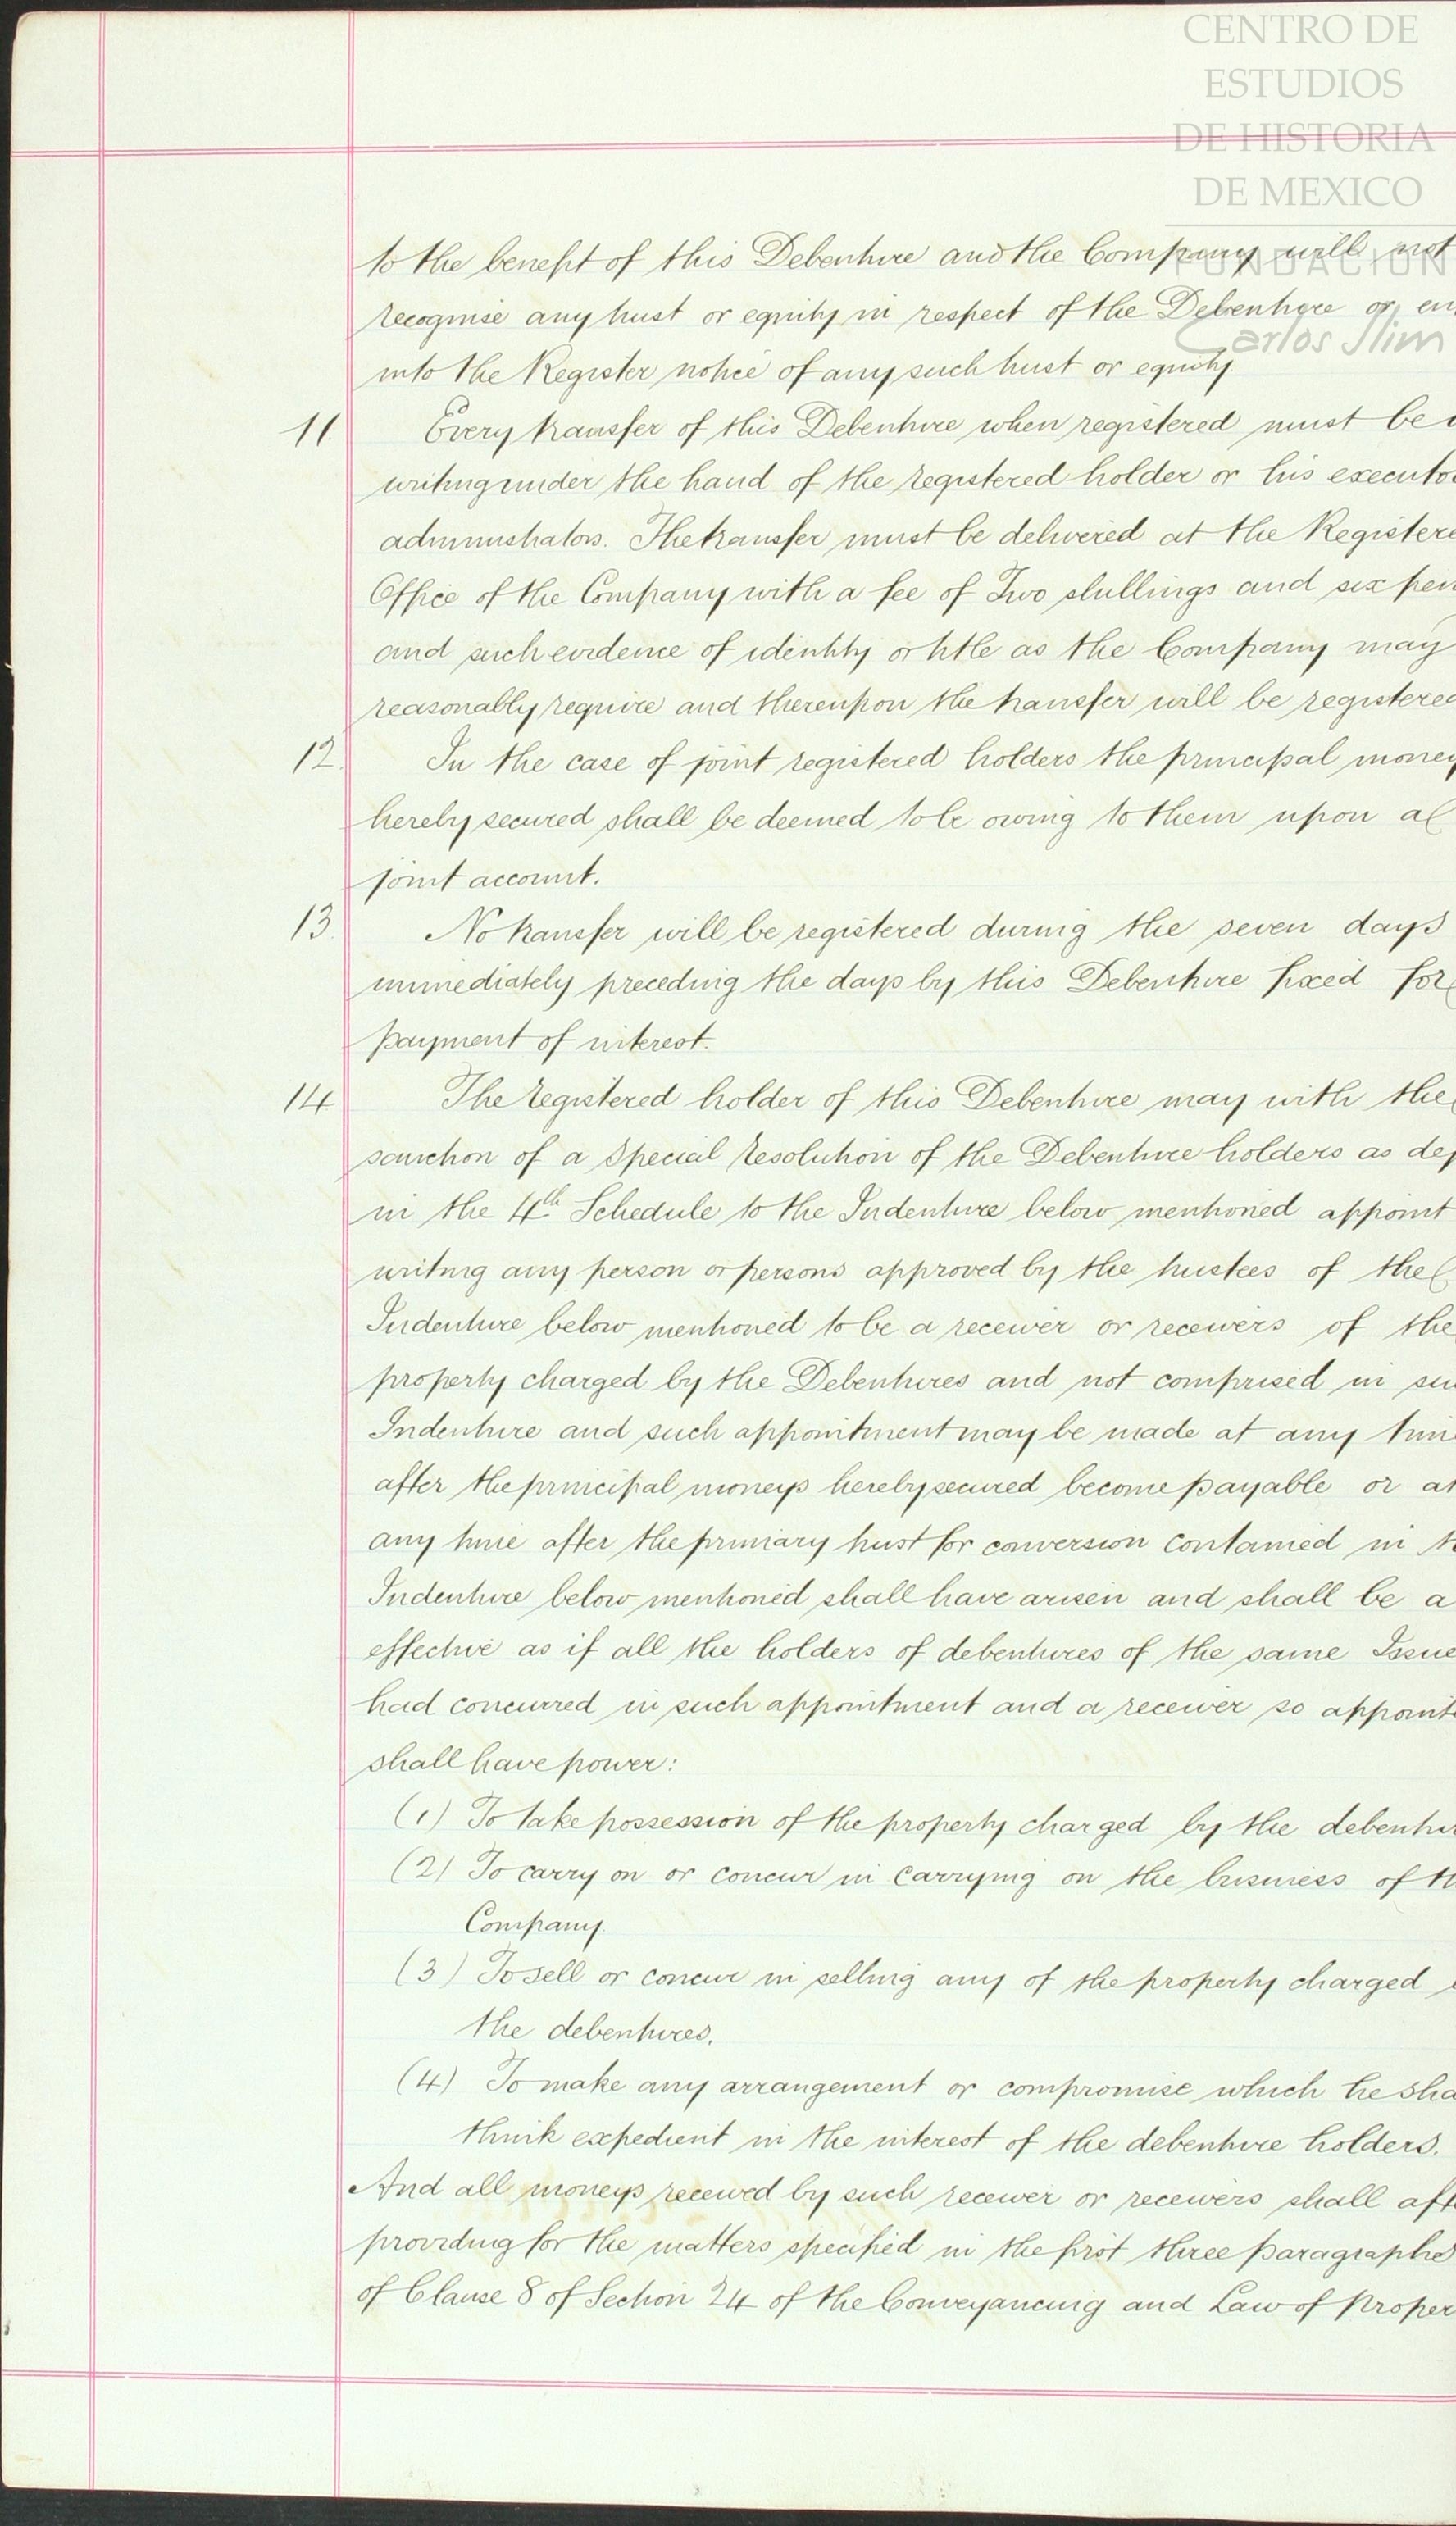 CENTRO DE
ESTUDIOS
DE HISTORIA
DE MEXICO
FUNDACION
Carlos Slim
to the benefit of this Debenture and the Company will not
recognise any trust or equity in respect of the Debenture or en
into the Register notice of any such trust or equity
11. Every transfer of this Debenture when registered must be i
writing under the hand of the registered holder or his executo
administrators. The transfer must be delivered at the Registere
Office of the Company with a fee of Two shillings and six pen
and such evidence of identity or title as the Company may
reasonably require and thereupon the transfer will be registered
12. In the case of joint registered holders the principal money
hereby secured shall be deemed to be owing to them upon a
joint account.
13. No transfer will be registered during the seven days
immediately preceding the days by this Debenture fixed for
payment of interest.
14 The registered holder of this Debenture may with the
sanction of a Special Resolution of the Debenture holders as def
in the 4th Schedule to the Indenture below mentioned appoint
writing any person or persons approved by the trustees of the
Indenture below mentioned to be a receiver or receivers of the
property charged by the Debentures and not comprised in su
Indenture and such appointment may be made at any tim
after the principal moneys hereby secured become payable or at
any time after the primary trust for conversion contained in t
Indenture below mentioned shall have arisen and shall be a
effective as if all the holders of debentures of the same Issue
had concurred in such appointment and a receiver so appointe
shall have power:
(1) To take possession of the property charged by the debentur
(2) To carry on or concur in carrying on the business of th
Company.
(3) To sell or concur in selling any of the property charged
the debentures.
(4) To make any arrangement or compromise which he sha
think expedient in the interest of the debenture holders.
And all moneys received by such receiver or receivers shall aft
providing for the matters specified in the first three paragraphs
of Clause 8 of Section 24 of the Conveyancing and Law of Proper